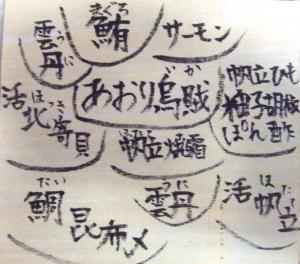 うに
雲丹
まぐろ
鮪
サーモン
ほっき
活北寄貝
いか
あおり烏賊
帆立ひも
柚子胡椒
ぽん酢
帆立焼霜
たい
鯛
昆布〆
うに
雲丹
ほたて
活帆立